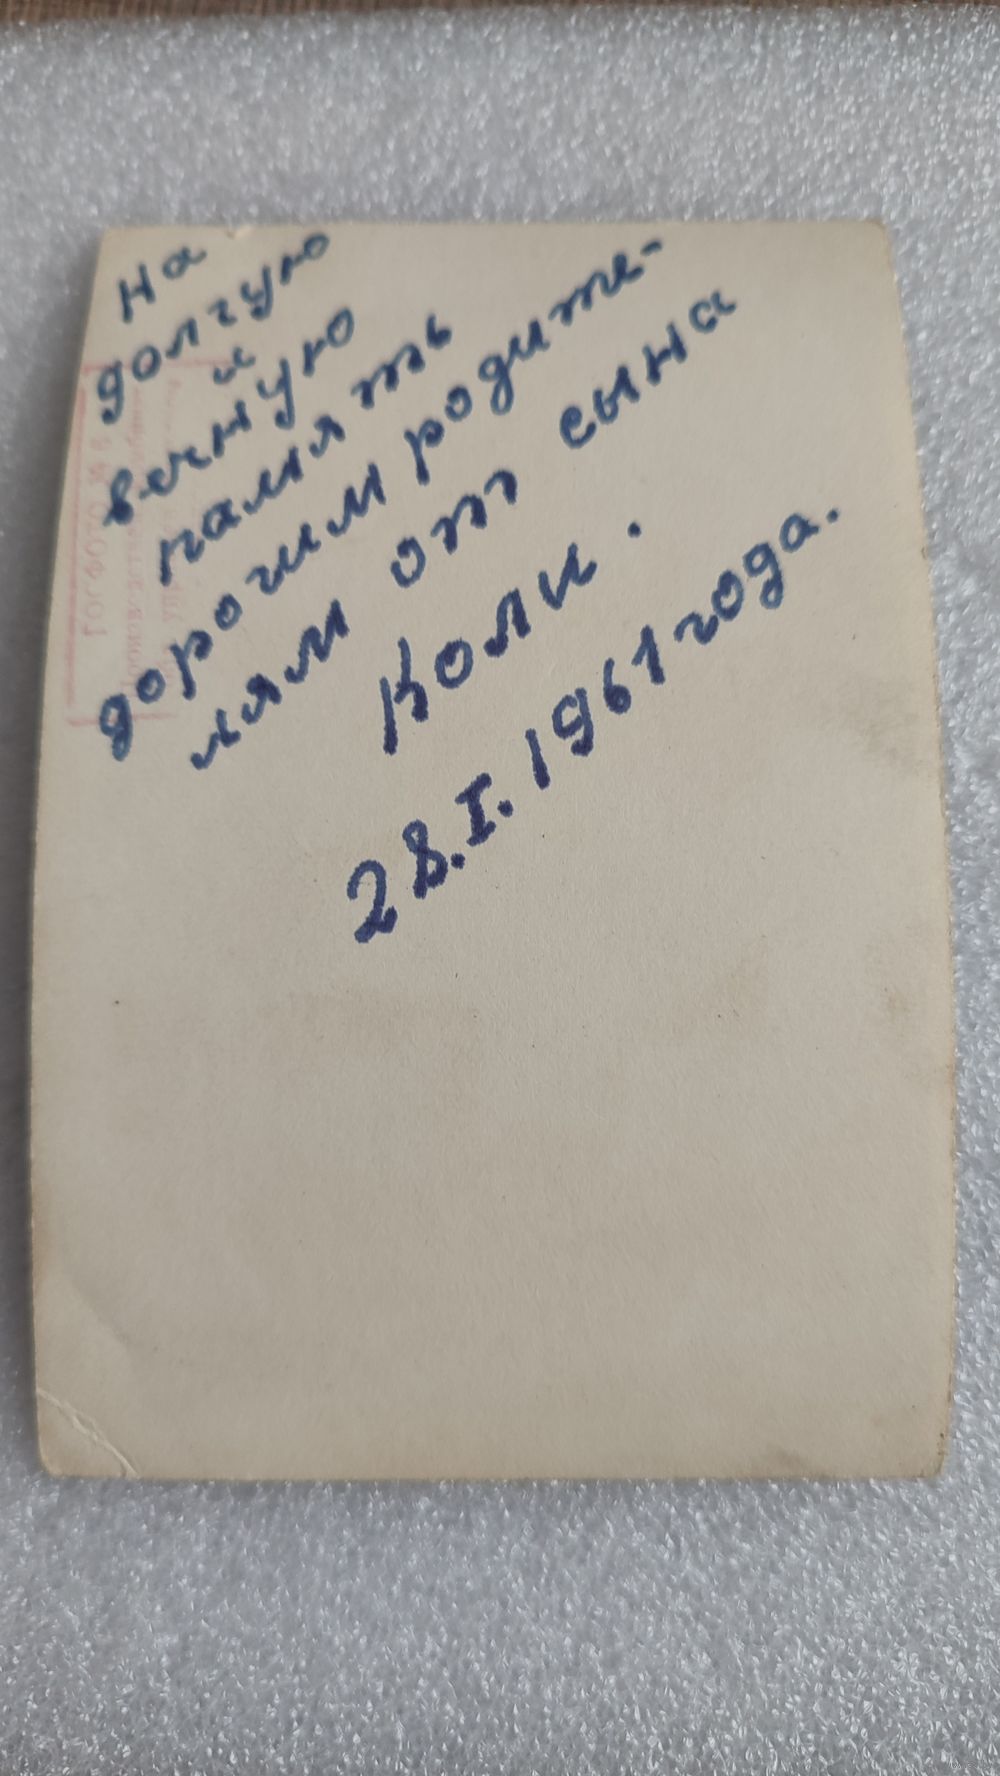 На
долгую
и
вечную
память
дорогим родите-
лям от сына
Коли.
28.I.1961 года.
ГОСФОТО № 8